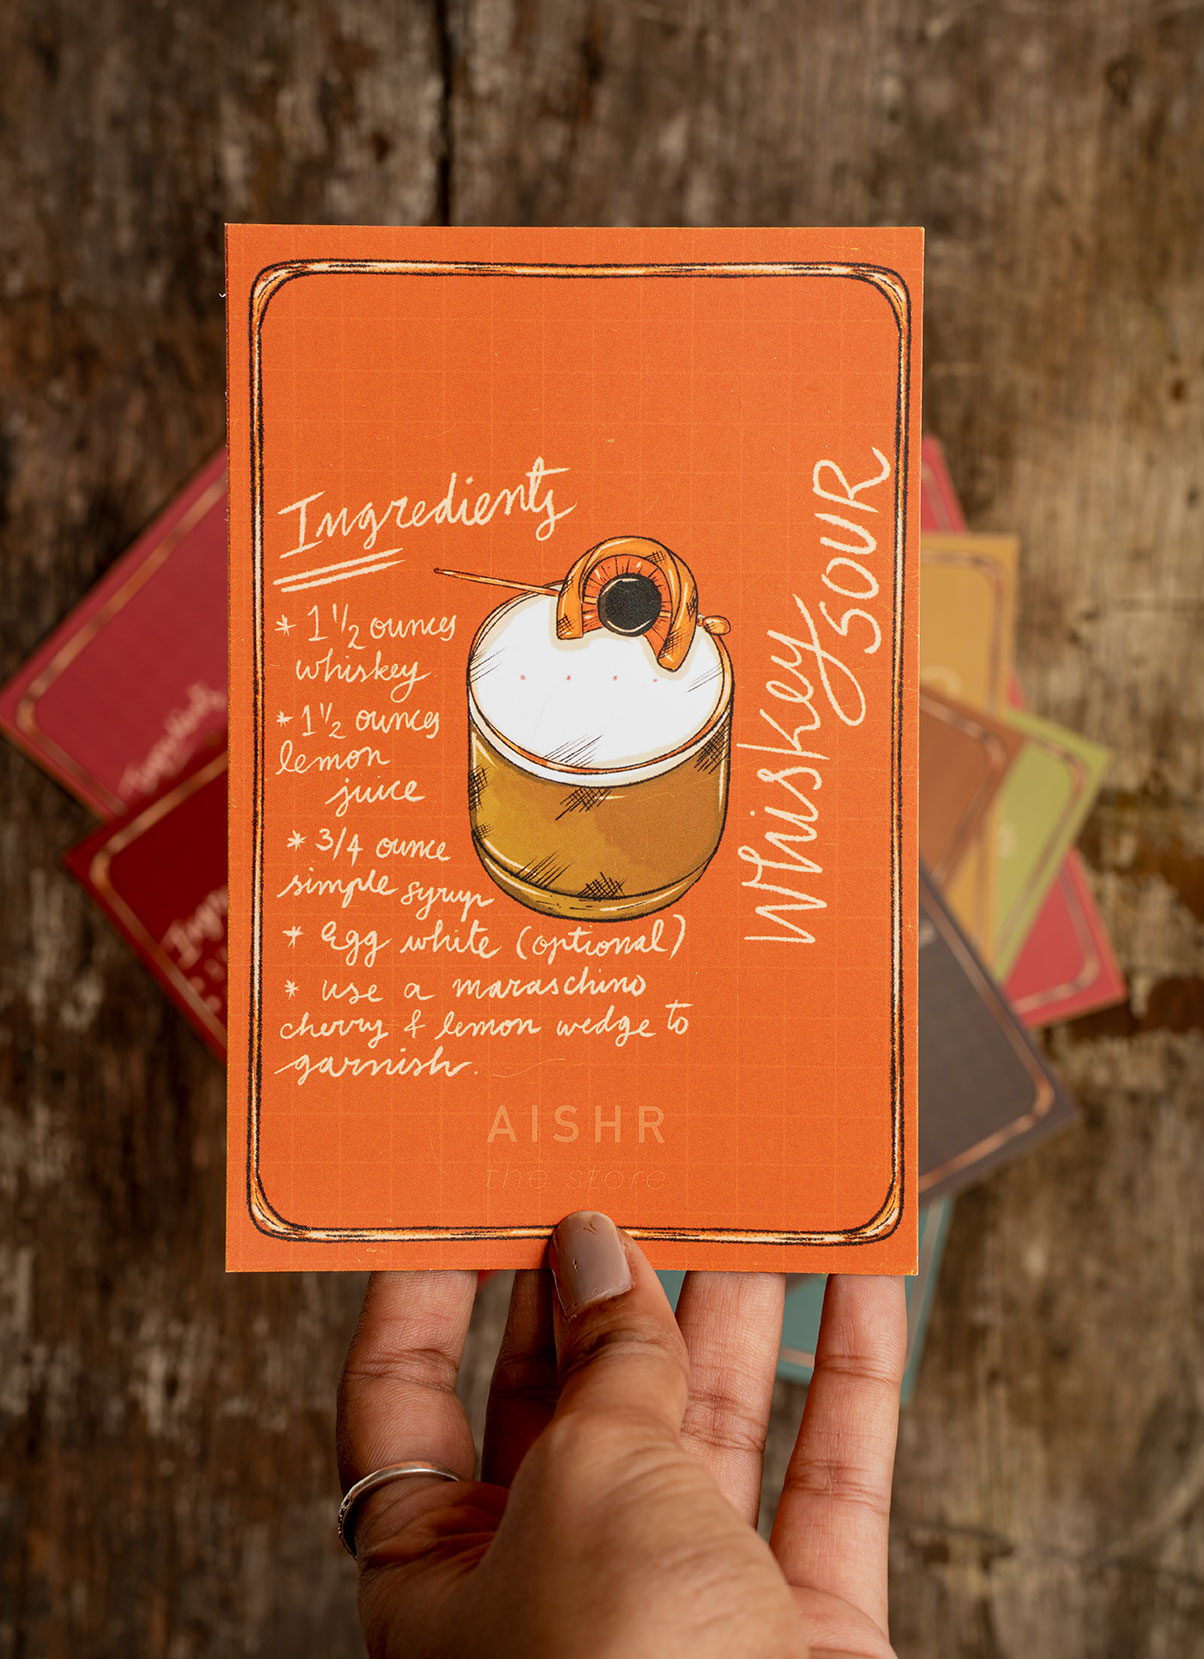 Ingredients
* 1 1/2 ounces
whiskey
* 1 1/2 ounces
lemon
juice
* 3/4 ounce
simple syrup
* Egg white (optional)
* use a maraschino
cherry & lemon wedge to
garnish.
Whiskey
SOUR
AISHR
the store
Ingredients